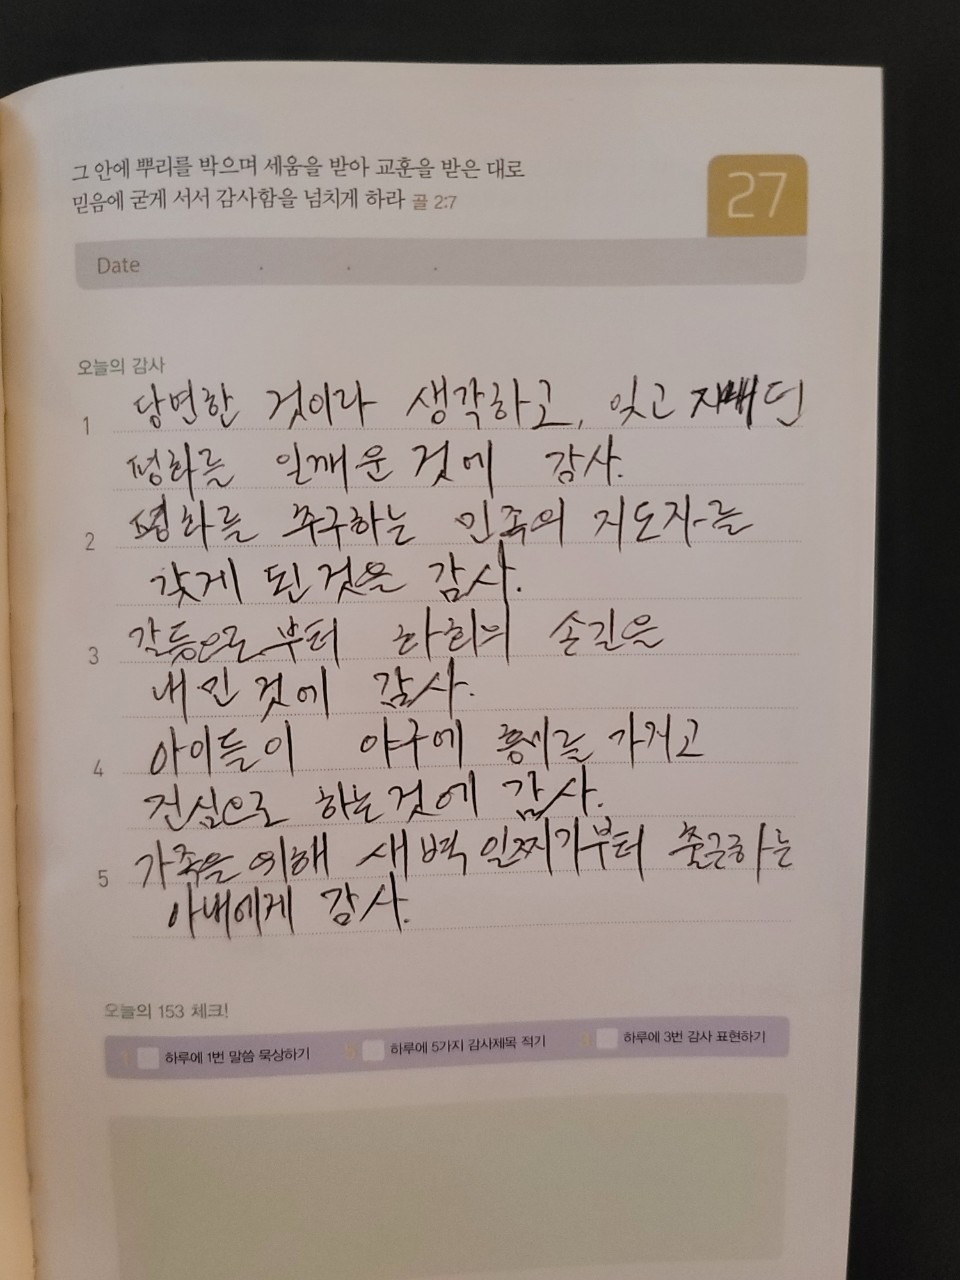 그 안에 뿌리를 박으며 세움을 받아 교훈을 받은 대로
믿음에 굳게 서서 감사함을 넘치게 하라 골 2:7
27
Date . . .
오늘의 감사
1 당연한 것이라 생각하고, 잊고 지내던
평화를 일깨운 것에 감사.
2 평화를 추구하는 민족의 지도자를
갖게 된 것을 감사.
3 갈등으로부터 화해의 손길을
내민 것에 감사.
4 아이들이 야구에 흥미를 가지고
진심으로 하는 것에 감사.
5 가족을 위해 새벽 일찍부터 출근하는
아내에게 감사.
오늘의 153 체크!
1 하루에 1번 말씀 묵상하기 5 하루에 5가지 감사제목 적기 3 하루에 3번 감사 표현하기